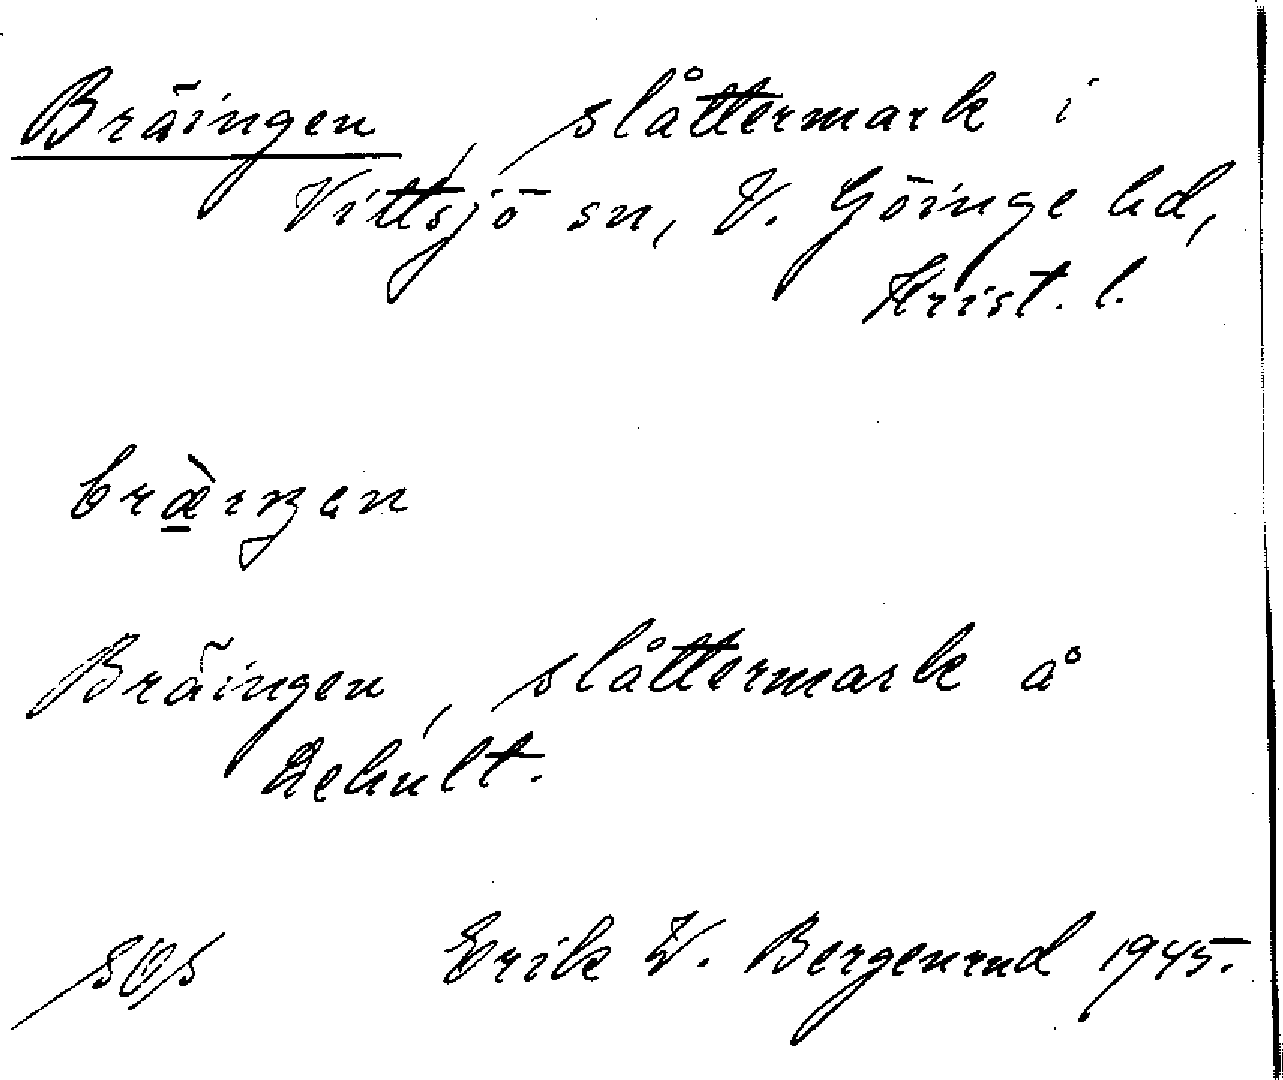 Bräingen, slåttermark i
Vittsjö sn, V. Göinge hd,
Krist. l.
Bräingen, slåttermark å
Dehult.
Erik W. Bergenrud 1945.